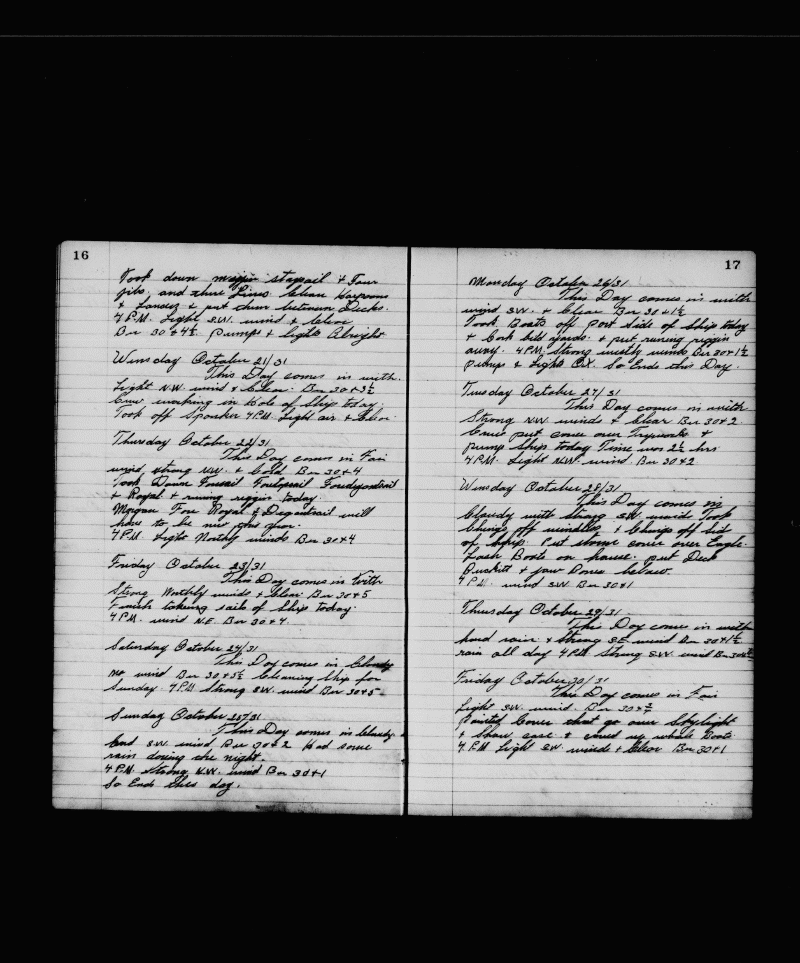 16
Took down mizzin staysail & Four
jibs. and there Lines. Clean Harpoons
& Lances & put them between Decks.
4 P.M. Light S.W. wind & Clear
Bar 30 & 4½ Pumps & Lights Alright
Winsday October 21/31
This Day comes in with
Light N.W. wind & Clear. Bar 30 & 3½
Crew working in Hole of Ship today.
Took off Spanker 4 P.M. Light air & Clear
Thursday October 22/31
This Day comes in Fair
wind strong & Cold Bar 30 & 4
Took Down Foresail
& Royal & runing riggin today.
Fore Royal & will
have to be
4 P.M. Light Northly winds Bar 30 & 4
Friday October 23/31
This Day comes in With
Strong Northly winds & Clear Bar 30 & 5
Finish takeing sails of Ship today.
4 P.M. wind N.E. Bar 30 & 4
Saturday October 24/31
This Day comes in Cloudy
no wind Bar 30 & 5½ Cleaning Ship for
Sunday. 4 P.M. Strong S.W. wind Bar 30 & 5
Sunday October 25/31
This Day comes in Cloudy
And S.W. wind Bar 30 & 2 Had some
rain during the night.
4 P.M. Strong N.W. wind Bar 30 & 1
So Ends this day.
17
Monday October 26/31
This Day comes in with
wind S.W. & Clear Bar 30 & 1½
Took Boats off Port side of Ship today
& Cock bill yards. & put runing riggin
away. 4 P.M. Strong westly winds Bar 30 & 1½
Pumps & Lights O.K. So Ends this Day.
Tuesday October 27/31
This Day comes in with
Strong N.W. winds & Clear Bar 30 & 2.
Crew put cover over Tryworks &
pump Ship today Time was 2½ hrs
4 P.M. Light N.W. wind. Bar 30 & 2
Winsday October 28/31
This Day comes in
Cloudy with strong S.W. winds Took
off windlass &
of Ship. Put storm cover over Eagle.
Lash Boats on house. put Deck
Buckett & jaw Bones below.
4 P.M. wind S.W. Bar 30 & 1
Thursday October 29/31
This Day comes in with
hard rain & Strong SE wind Bar 30 & 1½
rain all day 4 P.M. Strong S.W. wind Bar
Friday October 30/31
This Day comes in Fair
Light S.W. wind. Bar 30 & ½
Painted Cover that go over Skylight
& Show case & up whale Boat.
4 P.M. Light S.W. winds & Clear Bar 30 & 1